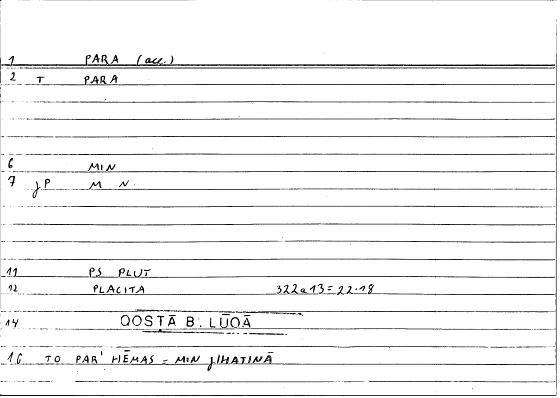 1 PARA (acc.)
2 T PARA
6 MIN
7 JP M N
11 PS PLUT
12 PLACITA 322a13=22.18
14 QOSTĀ B. LŪQĀ
16 TO PAR' HĒMAS = MIN JIHATINĀ